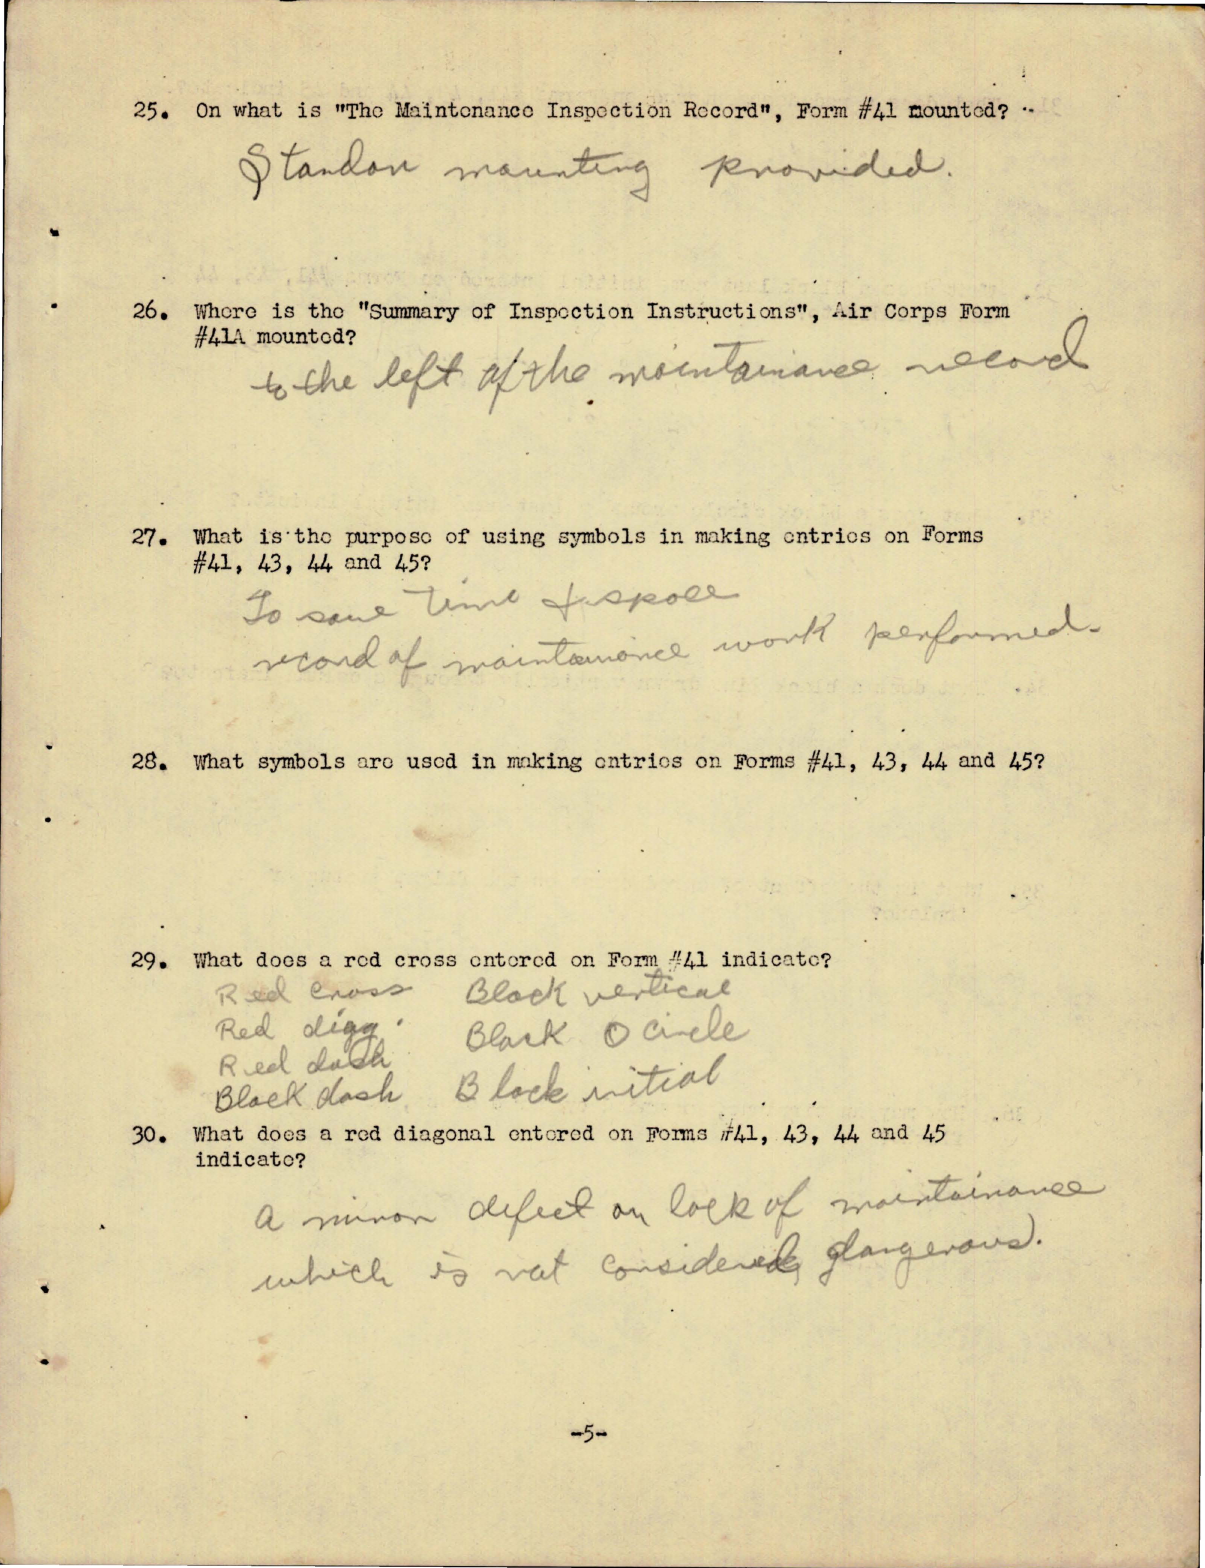 25. On what is "The Maintenance Inspection Record", Form #41 mounted?
Standon mounting provided.
26. Where is the "Summary of Inspection Instructions", Air Corps Form
#41A mounted?
to the left of the maintainance record
27. What is the purpose of using symbols in making entries on Forms
#41, 43, 44 and 45?
To save time & space
record of maintainance work performed.
28. What symbols are used in making entries on Forms #41, 43, 44 and 45?
29. What does a red cross entered on Form #41 indicate?
Red Cross Black vertical
Red diag. Black O Circle
Red dash
Black dash Black initial
30. What does a red diagonal entered on Forms #41, 43, 44 and 45
indicate?
A minor defect or lack of maintainance
which is not considered dangerous.
-5-